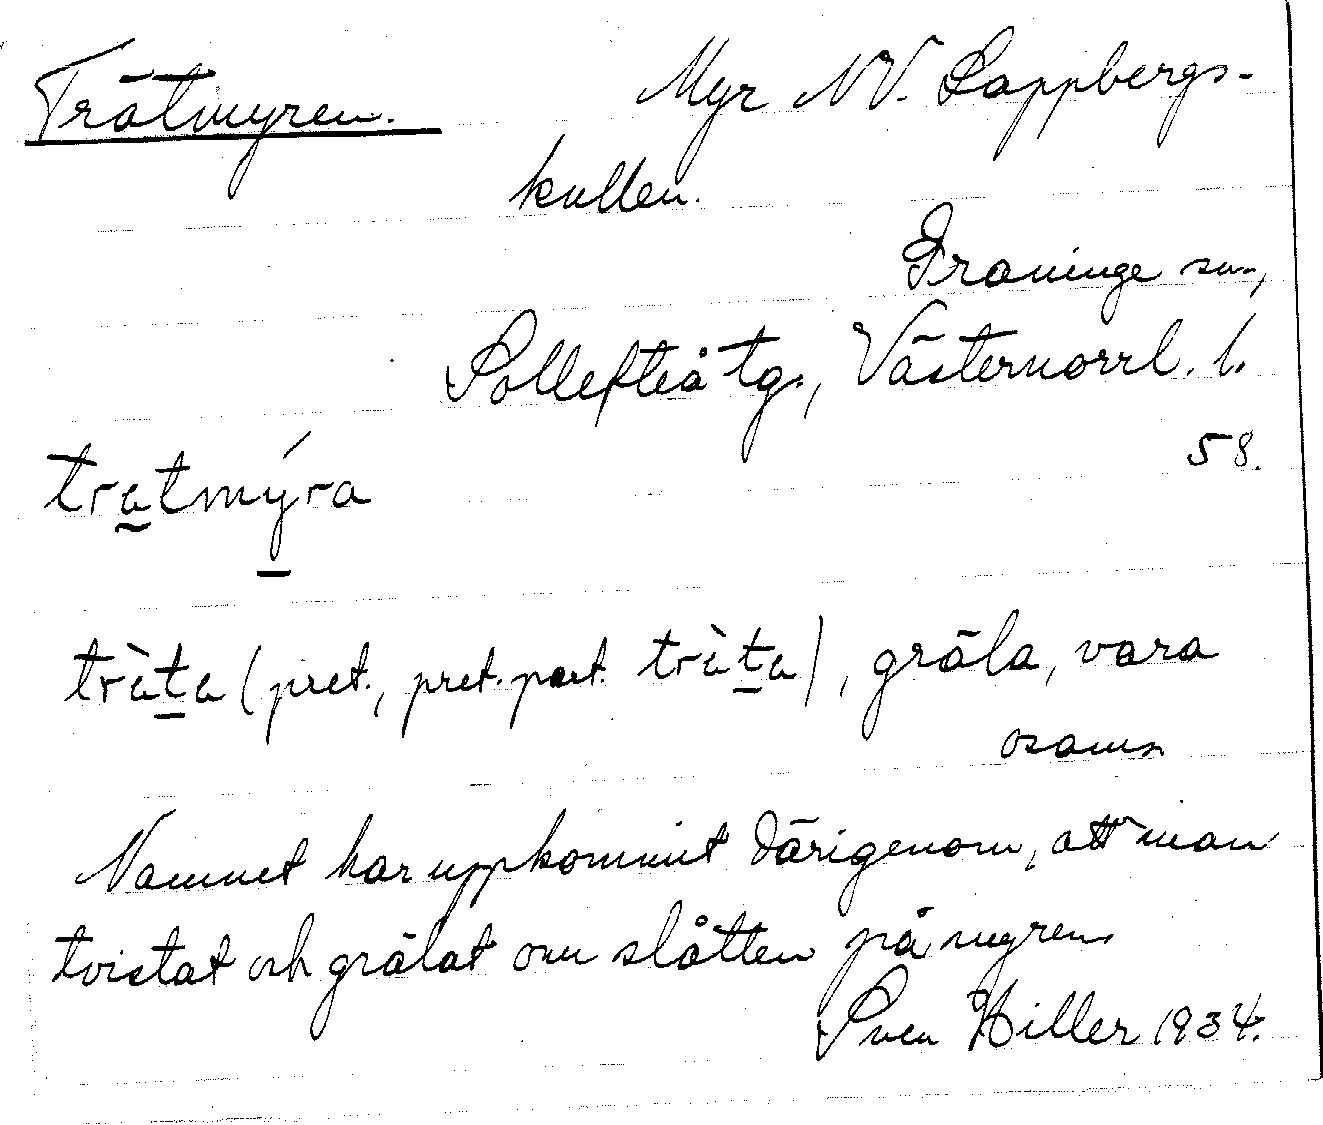 Trätmyren. Myr NV. Lappbergs-
kullen.
Graninge sn,
Sollefteå tg., Västernorrl. l.
58.
tratmýra
tràta (pret., pret. part. tràta), gräla, vara
osams
Namnet har uppkommit därigenom, att man
tvistat och grälat om slåtten på myren
Sven Hiller 1934.